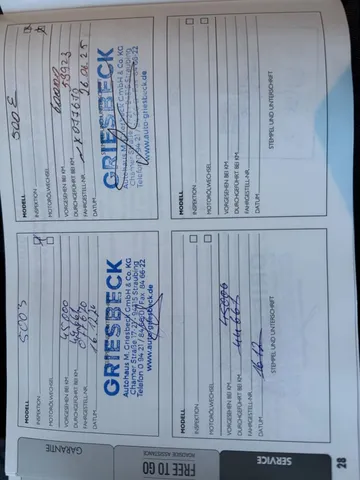 28
SERVICE
FREE TO GO
ROADSIDE ASSISTANCE
GARANTIE
MODELL
INSPEKTION
MOTORÖLWECHSEL
VORGESEHEN BEI KM 45000
DURCHGEFÜHRT BEI KM
FAHRGESTELL-NR.
DATUM 16.12.24
GRIESBECK
Autohaus M. Griesbeck GmbH & Co. KG
Chamer Straße 17-21 · 94315 Straubing
Telefon 0 94 21 / Fax 84 66-22
www.auto-griesbeck.de
MODELL 500 E
INSPEKTION
MOTORÖLWECHSEL
VORGESEHEN BEI KM 60000
DURCHGEFÜHRT BEI KM
FAHRGESTELL-NR.
DATUM 26.06.25
GRIESBECK
Autohaus M. Griesbeck GmbH & Co. KG
Chamer Straße 17-21 · 94315 Straubing
Telefon 0 94 21 / Fax 84 66-22
www.auto-griesbeck.de
MODELL
INSPEKTION
MOTORÖLWECHSEL
VORGESEHEN BEI KM 45000
DURCHGEFÜHRT BEI KM
FAHRGESTELL-NR.
DATUM 16.12
STEMPEL UND UNTERSCHRIFT
MODELL
INSPEKTION
MOTORÖLWECHSEL
VORGESEHEN BEI KM
DURCHGEFÜHRT BEI KM
FAHRGESTELL-NR.
DATUM
STEMPEL UND UNTERSCHRIFT